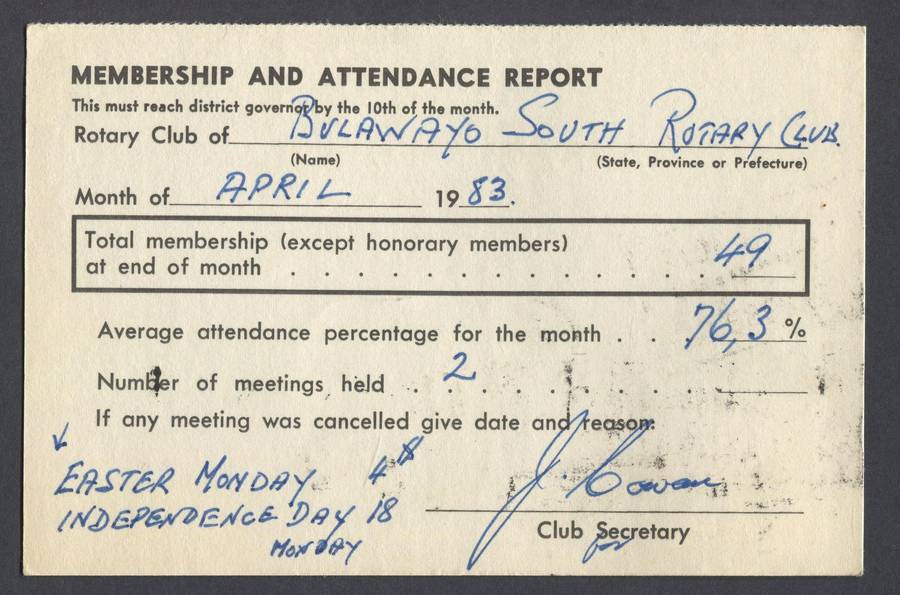 MEMBERSHIP AND ATTENDANCE REPORT
This must reach district governor by the 10th of the month.
Rotary Club of BULAWAYO SOUTH ROTARY CLUB.
(Name) (State, Province or Prefecture)
Month of APRIL 1983.
Total membership (except honorary members)
at end of month . . . . . . . . . . . . . . . . 49
Average attendance percentage for the month . . . 76,3 %
Number of meetings held . 2 . . . . . . . . . .
If any meeting was cancelled give date and reason:
EASTER MONDAY 4th
INDEPENDENCE DAY 18
MONDAY
J. Cowan
Club Secretary
for